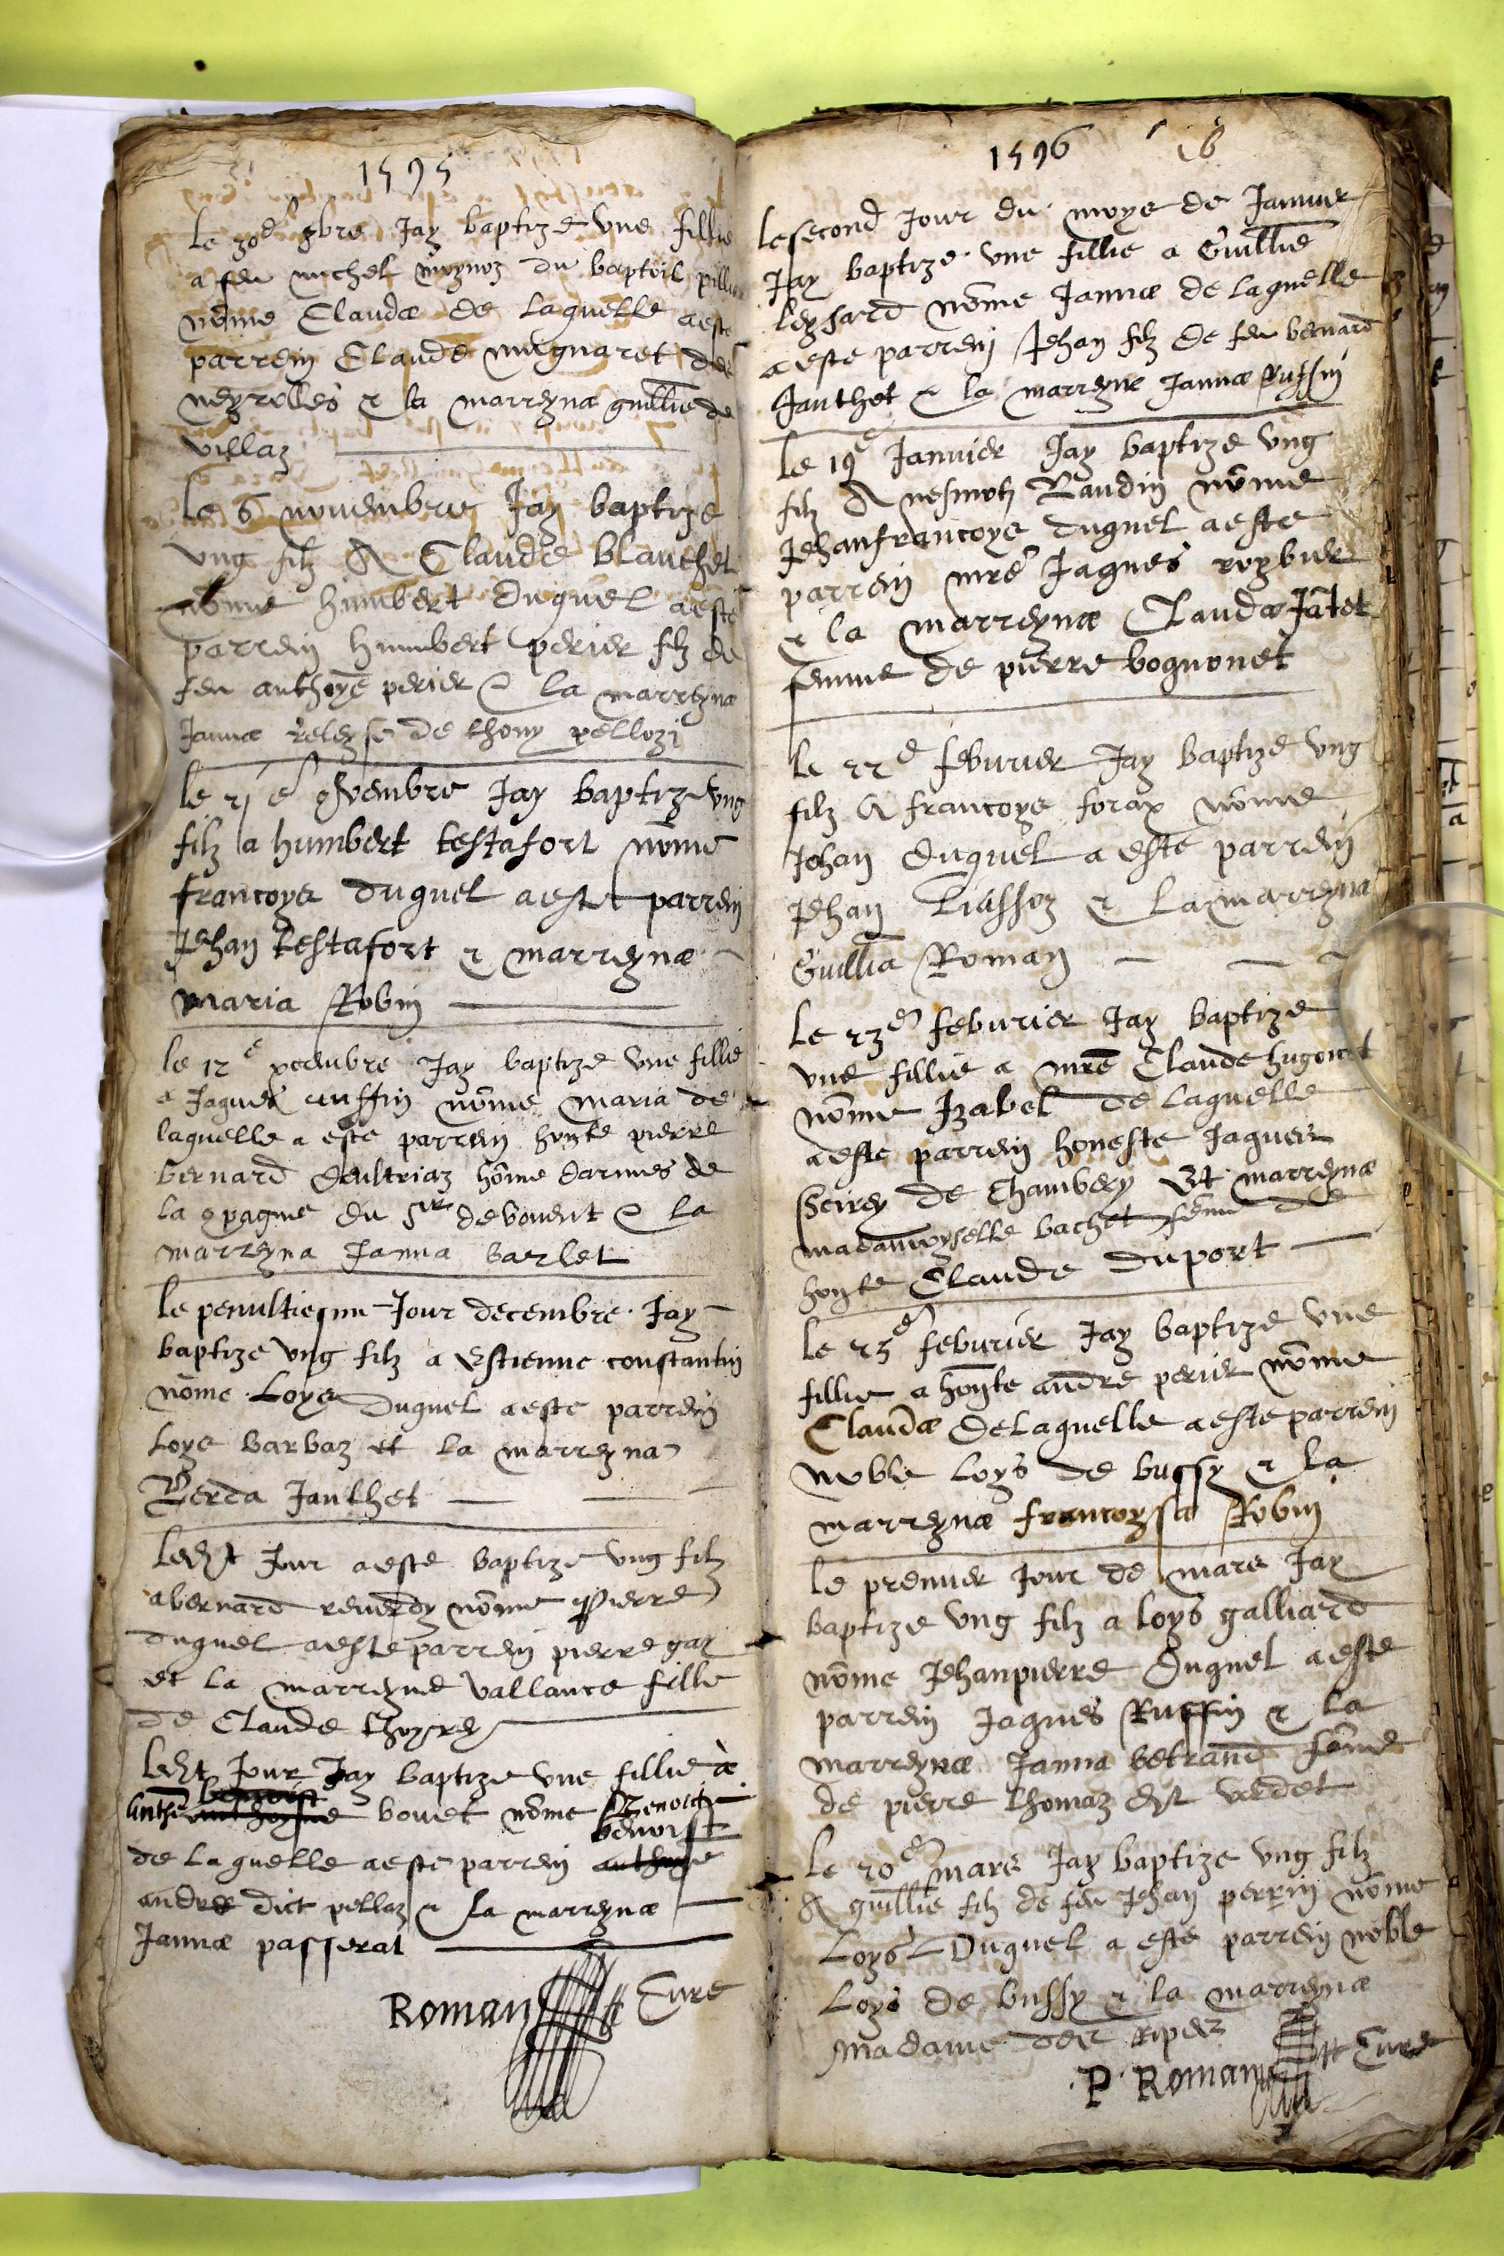 1595
Le 30e 8bre Jay baptize une fillie
a feu michel moynoz du baptoil
nome Claudæ de laquelle aeste
parrein Claude mugnaret des
neyrolles & la marreynæ guillie de
villaz
Le 6 novembre Jay baptize
ung filz A Claude blanchet
nome humbert duquel aeste
parrein humbert perier filz de
feu anthoyne perier & la marreynæ
Jannæ releyse de thony pellozi
le 21e 9vembre Jay baptize ung
filz a humbert testafort nome
francoys duquel aeste parrein
Jehan testafort & marreynæ
maria Robin
le 12e xcembre Jay baptize une fillie
a Jaques ruffin nome maria de
laquelle a este parrein honste pierre
bernard deultriaz home darmes de
la 9pagnie du Sr de bouvent & la
marreyna Janna barlet
Le penultiesme Jour decembre Jay
baptize ung filz a Estienne constantin
nome Loys duquel aeste parrein
Loys barbaz et la marreyna
Berda Janthet
Ledyt Jour aeste baptize ung filz
abernard reuerdy nome Pierre
duquel aeste parrein pierre gay
et la marreyne Vallance fille
de Claude thoyrey
Ledyt Jour Jay baptize une fillie à
Anthe bouet nome Benoicte
benoist
de laquelle aeste parrein anthoyne
andre dict pellaz & la marreynæ
Jannæ passerat
Roman Cure
1596 16
Le second Jour du moys de Janvier
Jay baptize une fillie a Guillie
leysard nome Jannæ de laquelle
aeste parrein Jehan filz de feu bernard
Janthet & la marreyne Jannæ Ruffin
Le 19e Janvier Jay baptize ung
filz A nesmoz Baudin nome
Jehanfrancoys duquel aeste
parrein mre Jaques roybier
& la marreynæ Claudæ Jatet
femme de pierre bognonet
le 22e feburier Jay baptize ung
filz A francoys forax nome
Jehan duquel aeste parrein
Jehan liassoz & la marreyna
Guillia Roman
Le 23e feburier Jay baptize
une fillie a mre Claude hugonet
nome Izabel de laquelle
aeste parrein honeste Jaques
Sseirey de Chambery Et marreynæ
madamoyselle bachet feme de
honste Claude duport
le 25e feburier Jay baptize une
fillie a honste andre perier nome
Claudæ de laquelle aeste parrein
noble Loys de bussy & la
marreynæ francoysa Robin
le premier Jour de mars Jay
baptize ung filz a Loys galliard
nome Jehanpierre duquel aeste
parrein Jaques Ruffin & la
marreynæ Janna betrand feme
de pierre thomaz dyt verdet
Le 20e mars Jay baptize ung filz
A guillie filz de feu Jehan perrin nome
Loys Duquel a este parrein noble
Loys de bussy & la marreynæ
madame des Ripes
P. Roman Cure